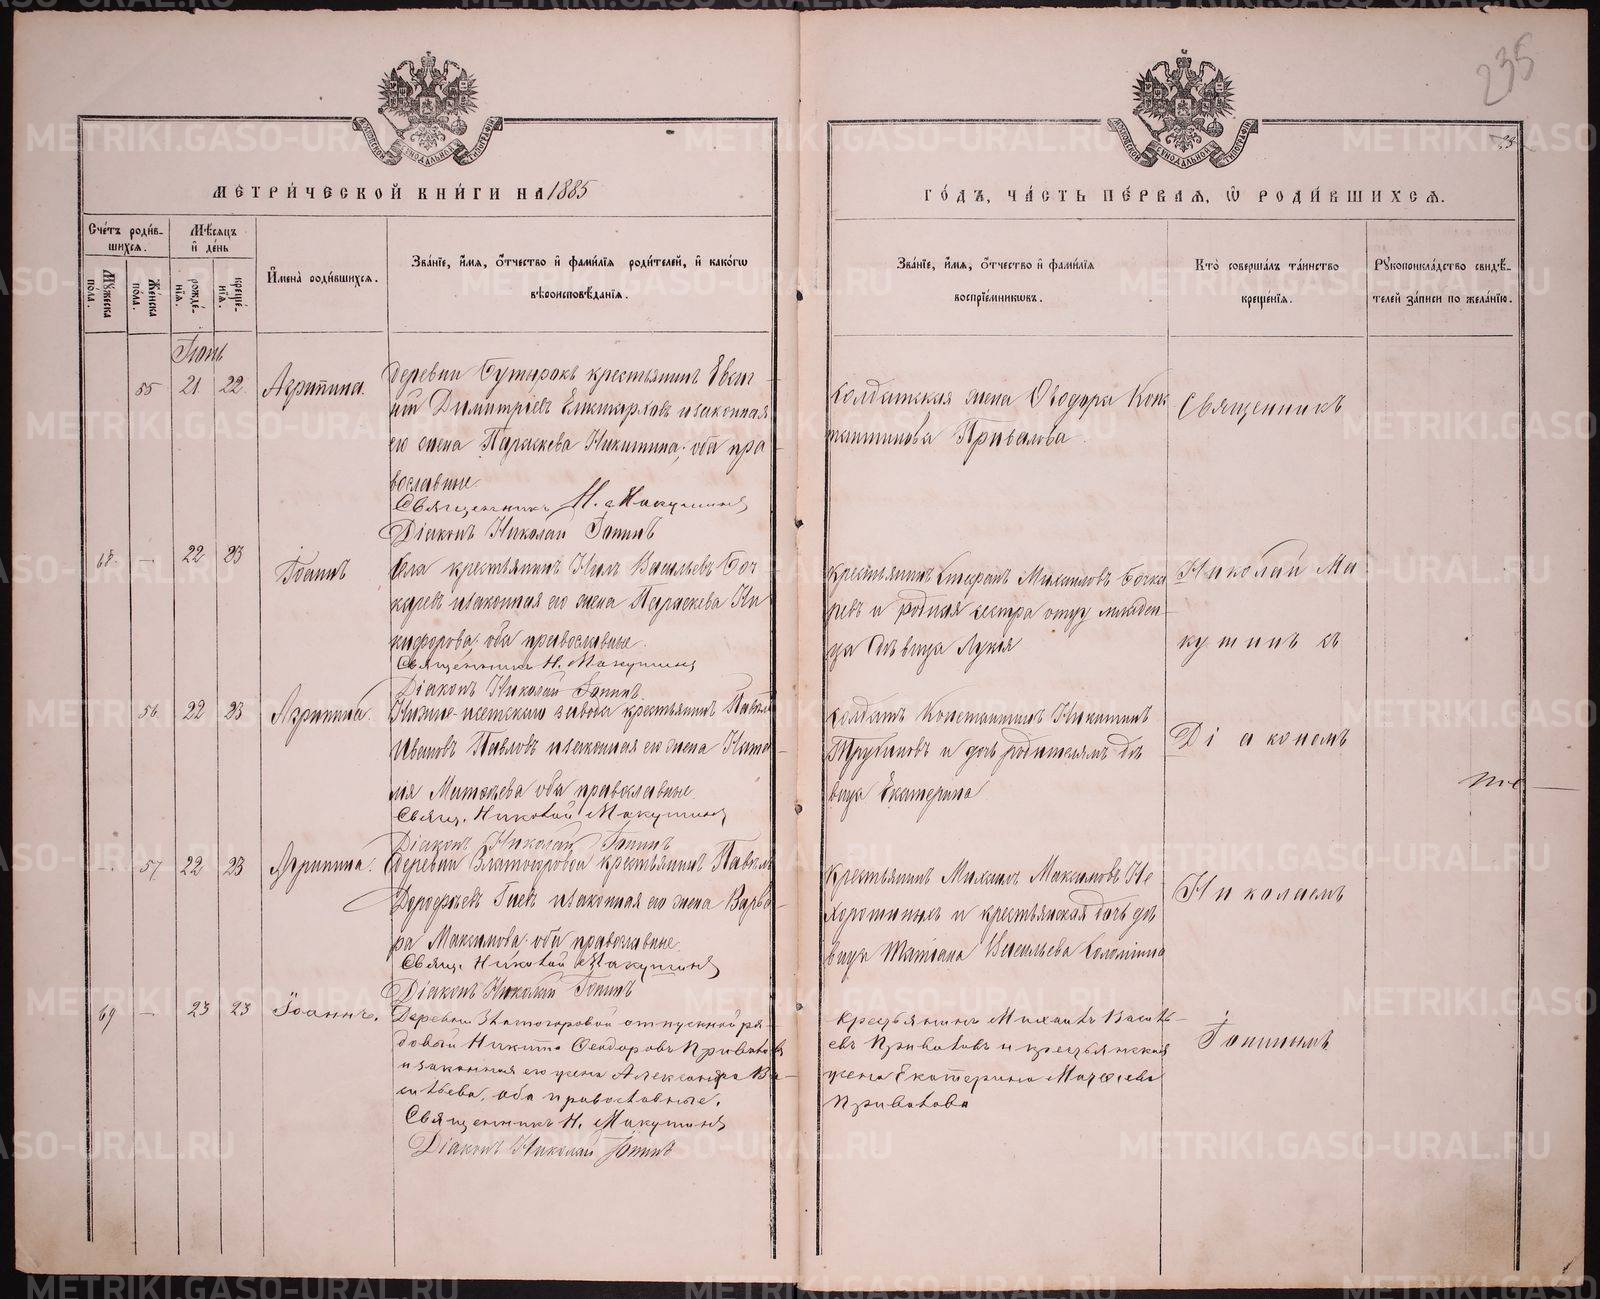 235
МЕТРИ́ЧЕСКОЙ КНИ́ГИ НА 1885
ГО́ДЪ, ЧА́СТЬ ПЕ́РВАЯ, Ѡ РОДИ́ВШИХСЯ.
Сче́тъ роди́в-
шихся.
Мѣ́сяцъ
и҆ де́нь
Мꙋ́жеска пола.
Же́нска по́ла.
рожде́-нїѧ.
креще́-нїѧ.
И҆мена̀ роди́вшихся.
Зва́нїе, и҆́мѧ, ѻ҆́тчество и҆ фами́лїѧ роди́телей, и҆ како́гѡ
вѣроисповѣ́данїѧ.
Зва́нїе, и҆́мѧ, ѻ҆́тчество и҆ фами́лїѧ
воспрїе́мникѡвъ.
Кто̀ соверша́лъ та́инство
креще́нїѧ.
Рꙋкоприкла́дство свидѣ́-
телей за́писи по жела́нїю.
Іюнь
55 21 22 Агрипина.
Деревни Бутырокъ крестьянинъ Евси-
гній Димитріевъ и законная
его жена Параскева Никитина; оба пра-
вославные
Священникъ Н. Макушинъ
Діаконъ Николай Іонинъ
Солдатская жена Ѳеодора Кон-
стантинова Привалова.
Священникъ
68. — 22 23 Іоаннъ
Села крестьянинъ Нилъ Васильевъ Боч-
каревъ и законная его жена Параскева Ни-
кифорова, оба православные.
Священникъ Н. Макушинъ
Діаконъ Николай Іонинъ.
Крестьянинъ Стефанъ Михаиловъ Бочка-
ревъ и родная сестра отцу младен-
ца дѣвица Лукія
Николай Ма
кушинъ съ
56. 22 23 Агрипина.
Нижне-исетскаго завода крестьянинъ Павелъ
Ивановъ Павловъ и законная его жена Ната-
лія Матѳеева оба православные.
Свящ. Николай Макушинъ
Діаконъ Николай Іонинъ
Солдатъ Константинъ Никитинъ
Трубиновъ и дочь родителямъ дѣ-
вица Екатерина
Діакономъ
57 22 23 Агрипина.
Деревни Златогоровой крестьянинъ Павелъ
Дорофеевъ Гневъ и законная его жена Варва-
ра Максимова. оба православные.
Свящ. Николай Макушинъ
Діаконъ Николай Іонинъ
Крестьянинъ Михаилъ Максимовъ Не-
хорошихъ и крестьянская дочь дѣ-
вица Татіана Васильева Соломина
Николаемъ
69 — 23 23 Іоаннъ.
Деревни Златогоровой отпускной ря-
довой Никита Ѳеодоровъ Приваловъ
и законная его жена Александра Ва-
сильева, оба православные.
Священникъ Н. Макушинъ
Діаконъ Николай Іонинъ
Крестьянинъ Михаилъ Василь-
евъ Приваловъ и крестьянская
жена Екатерина Матѳеева
Привалова
Іонинымъ